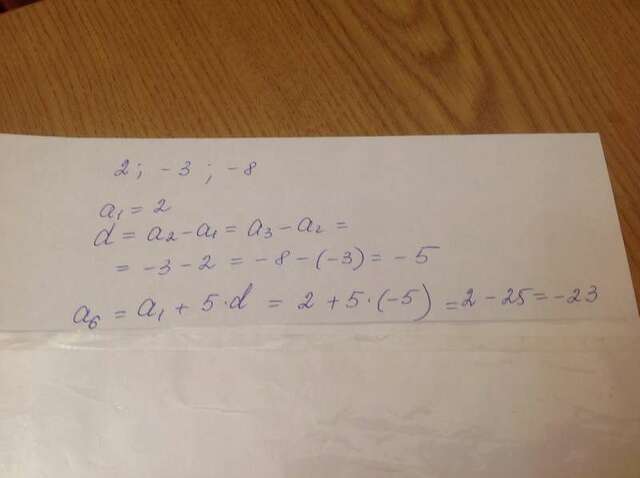 2; -3 ; -8
a₁ = 2
d = a₂-a₁ = a₃-a₂ =
= -3-2 = -8-(-3) = -5
a₆ = a₁ + 5·d = 2 + 5·(-5) = 2-25 = -23